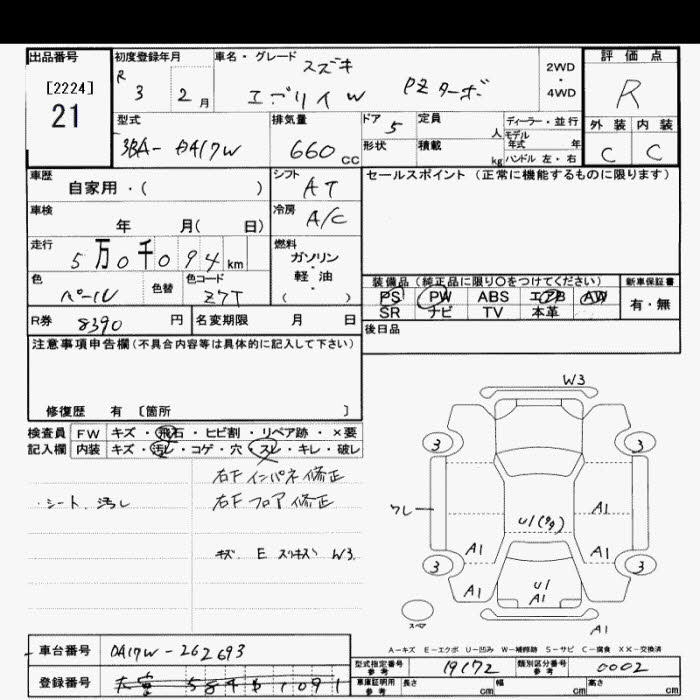 出品番号 初度登録年月 車名・グレード スズキ 2WD・4WD 評価点
[2224] 21 R 3 2月 エブリイW PZターボ R
型式 3BA-DA17W 排気量 660cc ドア 5 定員 人 ディーラー・並行 外装 内装
形状 積載 kg モデル年式 年 ハンドル 左・右 C C
車歴 自家用・( ) シフト AT セールスポイント(正常に機能するものに限ります)
車検 年 月( 日) 冷房 A/C
走行 5万0千094km 燃料 ガソリン・軽油 ( )
色 パール 色替 色コード Z7T 装備品(純正品に限り○をつけてください) 新車保証書
PS PW ABS エアB AW 有・無
SR ナビ TV 本革
R券 8390円 名変期限 月 日 後日品
注意事項申告欄(不具合内容等は具体的に記入して下さい)
修復歴 有 〔箇所 〕
検査員 FW キズ・飛石・ヒビ割・リペア跡・×要
記入欄 内装 キズ・汚レ・コゲ・穴・スレ・キレ・破レ
右Fインパネ修正
・シート、汚レ 右Fフロア修正
キズ E スリキズ W3
W3
3 3
ワレ A1
U1
A1 A1
3 3
A1 U1 A1 A1
スペア
A1
A-キズ E-エクボ U-凹み W-補修跡 S-サビ C-腐食 XX-交換済
車台番号 DA17W-262693 型式指定番号 参考 19172 類別区分番号 参考 0002
登録番号 車庫証明用 参考 長さ cm 幅 cm 高さ cm